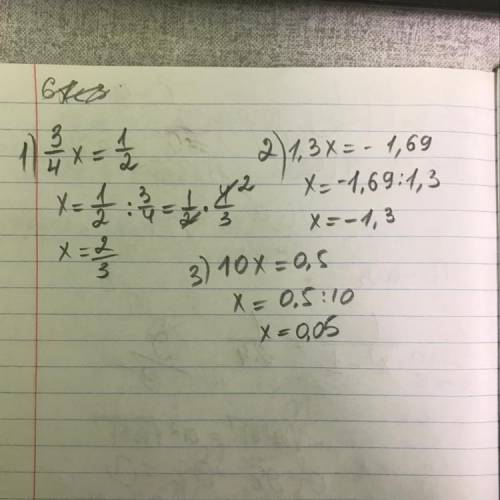 1) 3/4 x = 1/2
x = 1/2 : 3/4 = 1/2 · 4/3 2
x = 2/3
2) 1,3x = - 1,69
x = -1,69 : 1,3
x = -1,3
3) 10x = 0,5
x = 0,5 : 10
x = 0,05